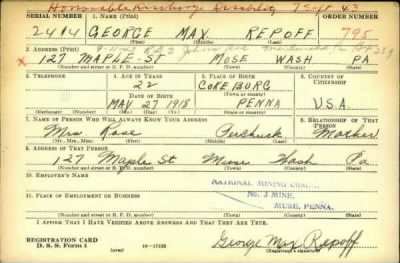 Honorable Discharge Disability 7 Sept 43
SERIAL NUMBER 1. NAME (Print) ORDER NUMBER
2414 GEORGE MAX REPOFF 795
(First) (Middle) (Last)
2. ADDRESS (Print)
x 127 MAPLE-ST MUSE WASH PA
(Number and street or R. F. D. number) (Town) (County) (State)
3. TELEPHONE 4. AGE IN YEARS 5. PLACE OF BIRTH 6. COUNTRY OF CITIZENSHIP
22 COKEBURG
DATE OF BIRTH (Town or county)
MAY 27 1918 PENNA U.S.A.
(Exchange) (Number) (Mo.) (Day) (Yr.) (State or country)
7. NAME OF PERSON WHO WILL ALWAYS KNOW YOUR ADDRESS 8. RELATIONSHIP OF THAT PERSON
Mrs. Rose Mother
(Mr., Mrs., Miss) (First) (Middle) (Last)
9. ADDRESS OF THAT PERSON
127 Maple St Muse Wash Pa
(Number and street or R. F. D. number) (Town) (County) (State)
10. EMPLOYER'S NAME
NATIONAL MINING
11. PLACE OF EMPLOYMENT OR BUSINESS No. 3 MINE,
MUSE, PENNA.
(Number and street or R. F. D. number) (Town) (County) (State)
I AFFIRM THAT I HAVE VERIFIED ABOVE ANSWERS AND THAT THEY ARE TRUE.
REGISTRATION CARD
D. S. S. Form 1 (over) 16—17105 George Max Repoff
(Registrant's signature)